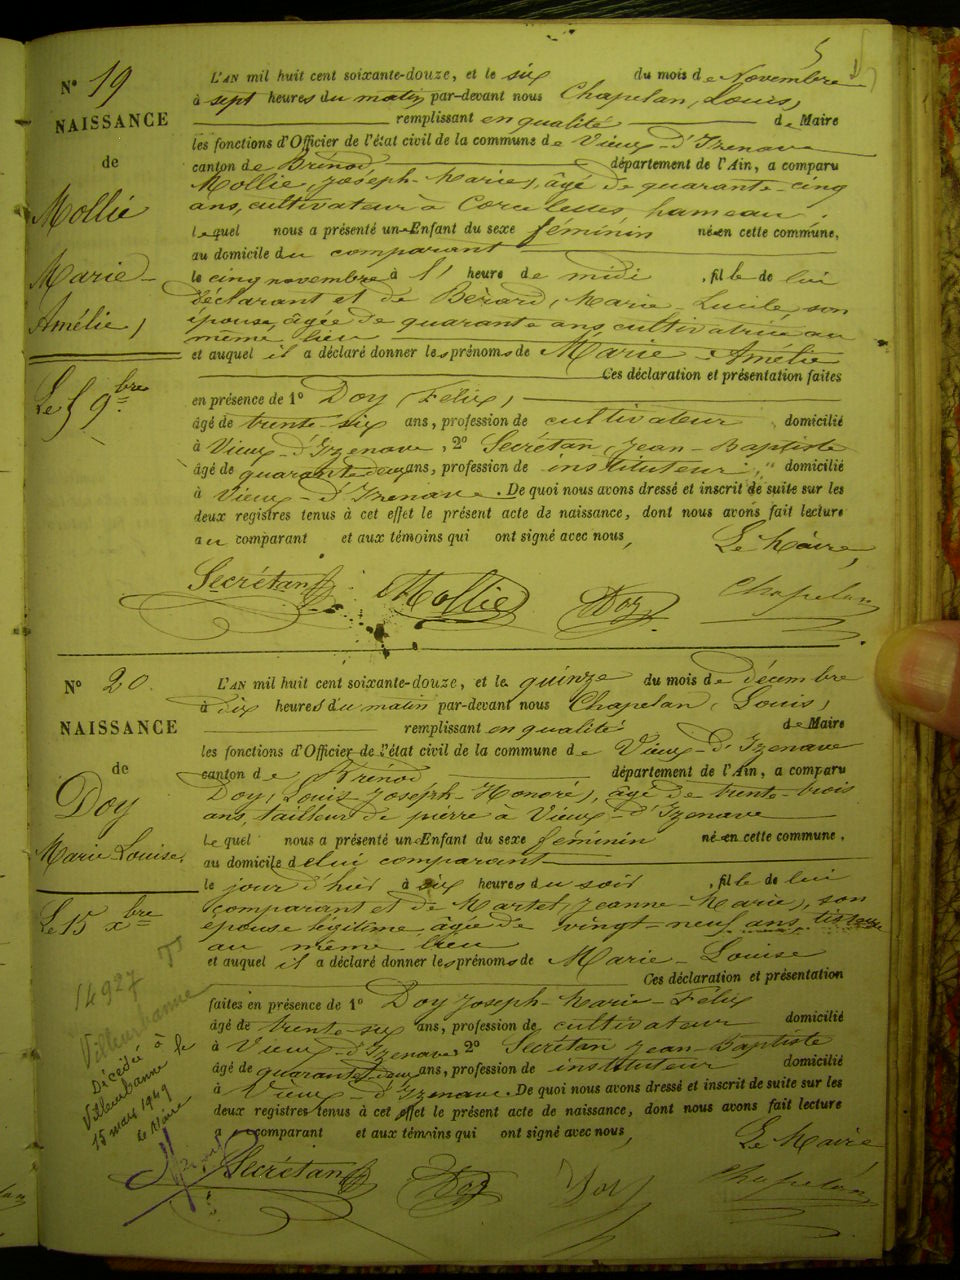 5
N° 19
NAISSANCE
de
Mollie
Marie-
Amélie,
Le 5 9.bre
L'AN mil huit cent soixante-douze, et le six du mois de Novembre
à sept heures du matin par-devant nous Chapelan, Louis,
remplissant en qualité de Maire
les fonctions d'Officier de l'état civil de la commune de Vieux-d'Izenave
canton de Brénod département de l'Ain, a comparu
Mollie, Joseph-Marie, âgé de quarante-cinq
ans, cultivateur à hameau
lequel nous a présenté un Enfant du sexe féminin né en cette commune,
au domicile du comparant
le cinq novembre à l' heure de midi, fille de lui
déclarant et de Bérard, Marie-Lucile, son
épouse, âgée de quarante ans, cultivatrice au
même lieu
et auquel il a déclaré donner les prénoms de Marie-Amélie
Ces déclaration et présentation faites
en présence de 1° Doy, Félix,
âgé de trente-six ans, profession de cultivateur domicilié
à Vieux-d'Izenave, 2° Secrétan, Jean-Baptiste
âgé de quarante-deux ans, profession de instituteur, domicilié
à Vieux-d'Izenave. De quoi nous avons dressé et inscrit de suite sur les
deux registres tenus à cet effet le présent acte de naissance, dont nous avons fait lecture
au comparant et aux témoins qui ont signé avec nous,
Le Maire,
Secrétan Mollie Doy Chapelan
N° 20
NAISSANCE
de
Doy
Marie Louise
Le 15 xbre
14927
Villeurbanne
Décédée à
Villeurbanne le
15 mars 1949
Le Maire
L'AN mil huit cent soixante-douze, et le quinze du mois de décembre
à dix heures du matin par-devant nous Chapelan, Louis,
remplissant en qualité de Maire
les fonctions d'Officier de l'état civil de la commune de Vieux-d'Izenave
canton de Brénod département de l'Ain, a comparu
Doy, Louis-Joseph-Honoré, âgé de trente-trois
ans, tailleur de pierre à Vieux-d'Izenave
lequel nous a présenté un Enfant du sexe féminin né en cette commune,
au domicile de lui comparant
le jour d'hier à six heures du soir, fille de lui
comparant et de Martet, Jeanne-Marie, son
épouse légitime, âgée de vingt-neuf ans
au même lieu
et auquel il a déclaré donner les prénoms de Marie-Louise
Ces déclaration et présentation
faites en présence de 1° Doy Joseph-Marie-Félix
âgé de trente-six ans, profession de cultivateur domicilié
à Vieux-d'Izenave 2° Secrétan Jean-Baptiste
âgé de quarante-deux ans, profession de instituteur domicilié
à Vieux-d'Izenave. De quoi nous avons dressé et inscrit de suite sur les
deux registres tenus à cet effet le présent acte de naissance, dont nous avons fait lecture
au comparant et aux témoins qui ont signé avec nous,
Le Maire
Secrétan Doy Doy Chapelan